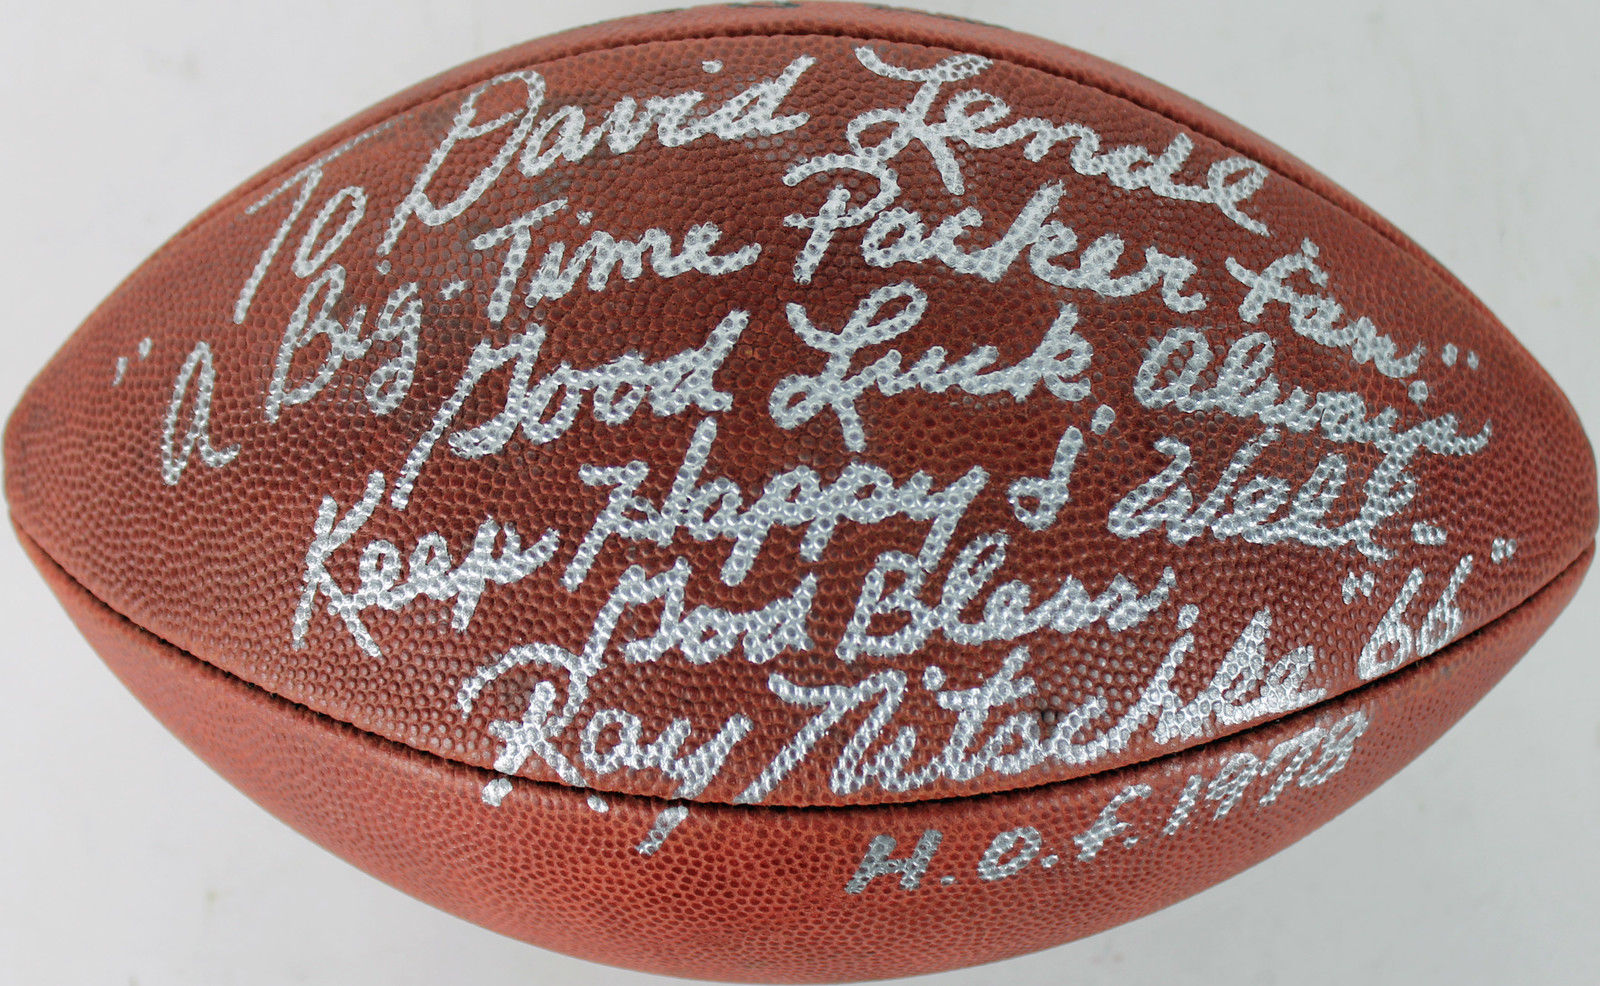 To David Lendel
"a Big-Time Packer Fan."
Good Luck, Always
Keep Happy & Well-"
God Bless,
Ray Nitschke "66"
H.O.F. 1978